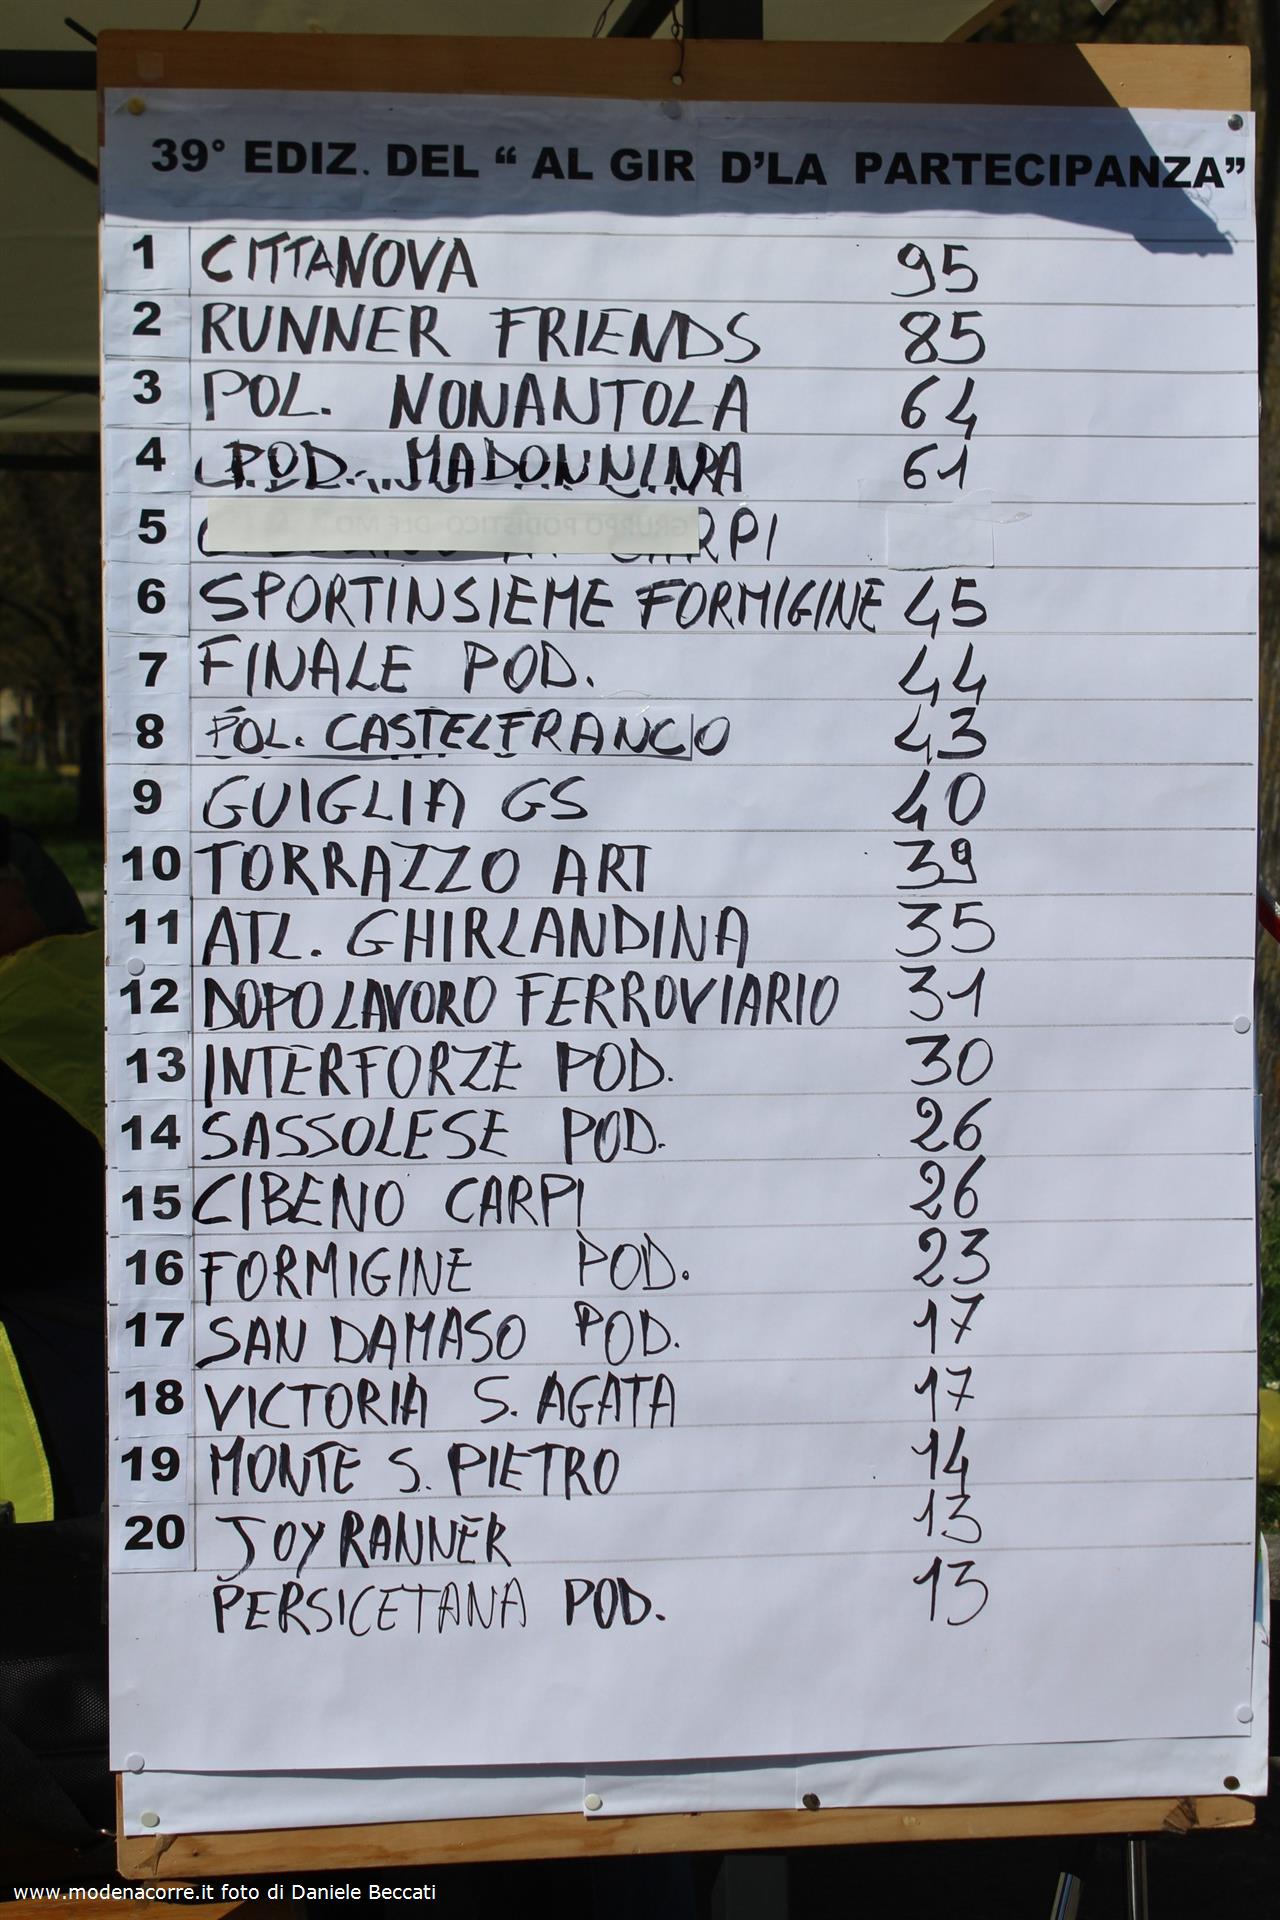 39° EDIZ. DEL “ AL GIR D’LA PARTECIPANZA”
1 CITTANOVA 95
2 RUNNER FRIENDS 85
3 POL. NONANTOLA 64
4 POD. MADONNINA 61
5
6 SPORTINSIEME FORMIGINE 45
7 FINALE POD. 44
8 POL. CASTELFRANCO 43
9 GUIGLIA GS 40
10 TORRAZZO ART 39
11 ATL. GHIRLANDINA 35
12 DOPOLAVORO FERROVIARIO 31
13 INTERFORZE POD. 30
14 SASSOLESE POD. 26
15 CIBENO CARPI 26
16 FORMIGINE POD. 23
17 SAN DAMASO POD. 17
18 VICTORIA S. AGATA 17
19 MONTE S. PIETRO 14
20 JOY RANNER 13
PERSICETANA POD. 13
www.modenacorre.it foto di Daniele Beccati